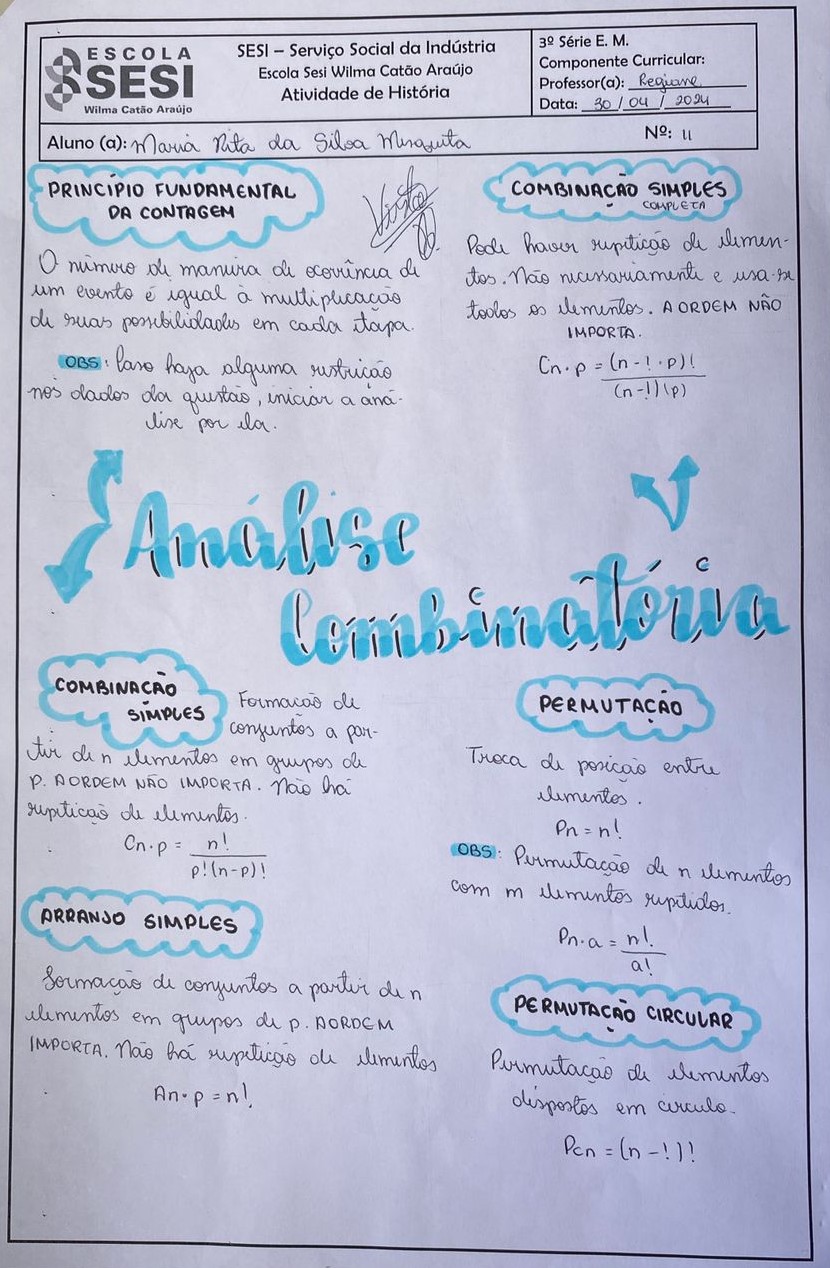 ESCOLA
SESI
Wilma Catão Araújo
SESI – Serviço Social da Indústria
Escola Sesi Wilma Catão Araújo
Atividade de História
3º Série E. M.
Componente Curricular:
Professor(a): Regiane
Data: 30 / 04 / 2024
Aluno (a): Maria Rita da Silva Mesquita
Nº: 11
PRINCÍPIO FUNDAMENTAL
DA CONTAGEM
Visto
O número de maneira de ocorrência de
um evento é igual à multiplicação
de suas possibilidades em cada etapa.
OBS: Caso haja alguma restrição
nos dados da questão, iniciar a aná-
lise por ela.
COMBINAÇÃO SIMPLES
COMPLETA
Pode haver repitição de elemen-
tos. Não necessariamente e usa-se
todos os elementos. A ORDEM NÃO
IMPORTA.
Cn·p = (n-!·p)!
(n-!)!(p)
Análise
Combinatória
COMBINAÇÃO
SIMPLES
Formação de
conjuntos a par-
tir de n elementos em grupos de
p. A ORDEM NÃO IMPORTA. Não há
repitição de elementos.
Cn·p = n!
p!(n-p)!
ARRANJO SIMPLES
Formação de conjuntos a partir de n
elementos em grupos de p. A ORDEM
IMPORTA. Não há repitição de elementos
An·p = n!
PERMUTAÇÃO
Troca de posição entre
elementos.
Pn = n!
OBS: Permutação de n elementos
com m elementos repitidos.
Pn·a = n!
a!
PERMUTAÇÃO CIRCULAR
Permutação de elementos
dispostos em circulo.
Pcn = (n-!)!